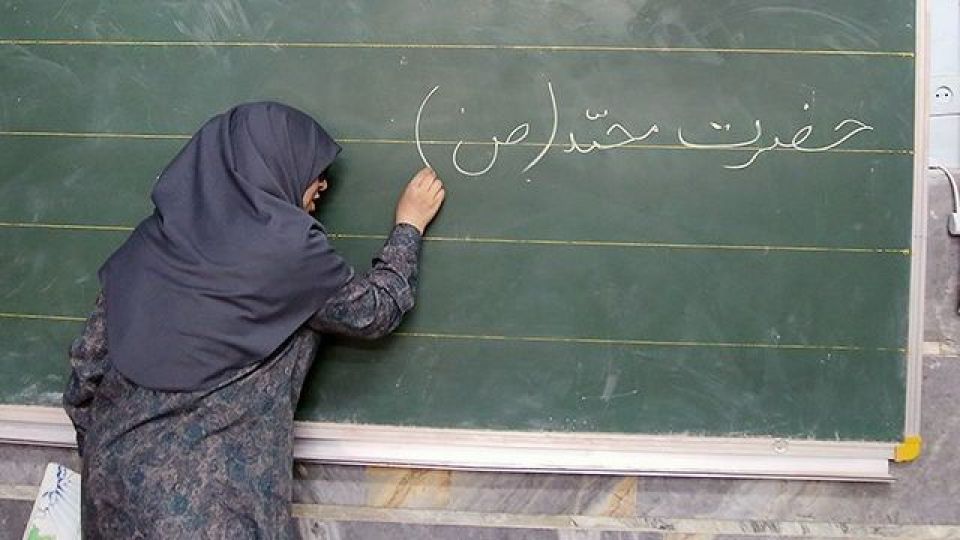 حضرت محمّد (ص)